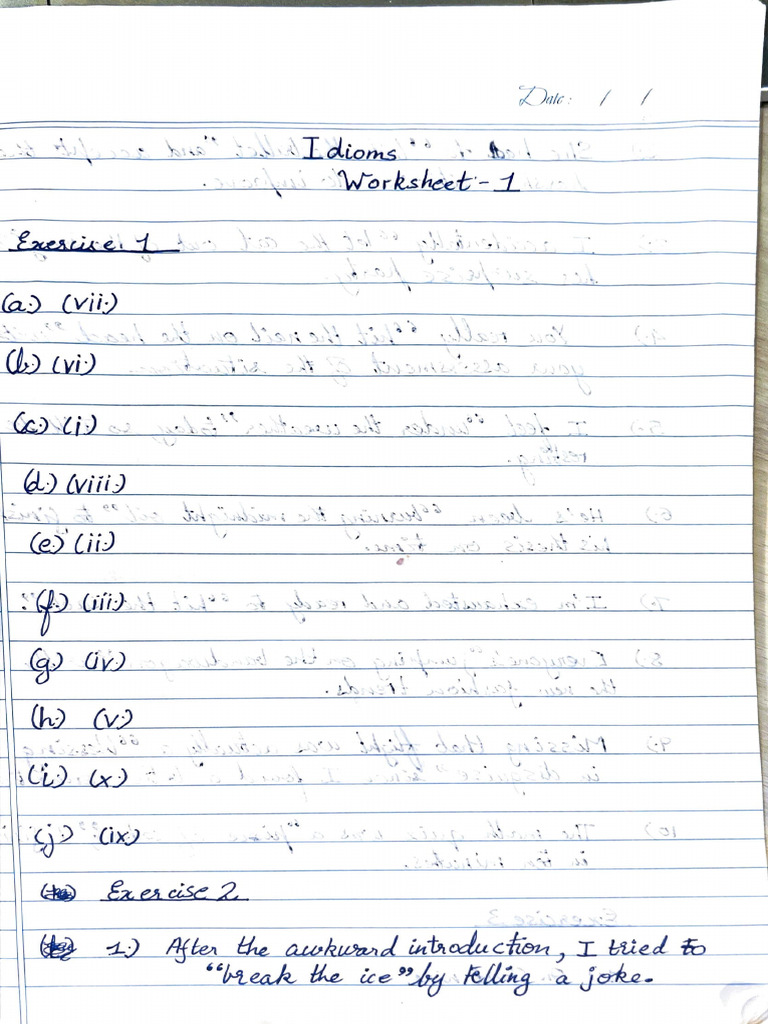 Date: / /
Idioms
Worksheet - 1
Exercise 1
(a.) (vii.)
(b.) (vi.)
(c.) (i.)
(d.) (viii.)
(e.) (ii.)
(f.) (iii.)
(g.) (iv.)
(h.) (v.)
(i.) (x.)
(j.) (ix.)
Exercise 2
1.) After the awkward introduction, I tried to
"break the ice" by telling a joke.